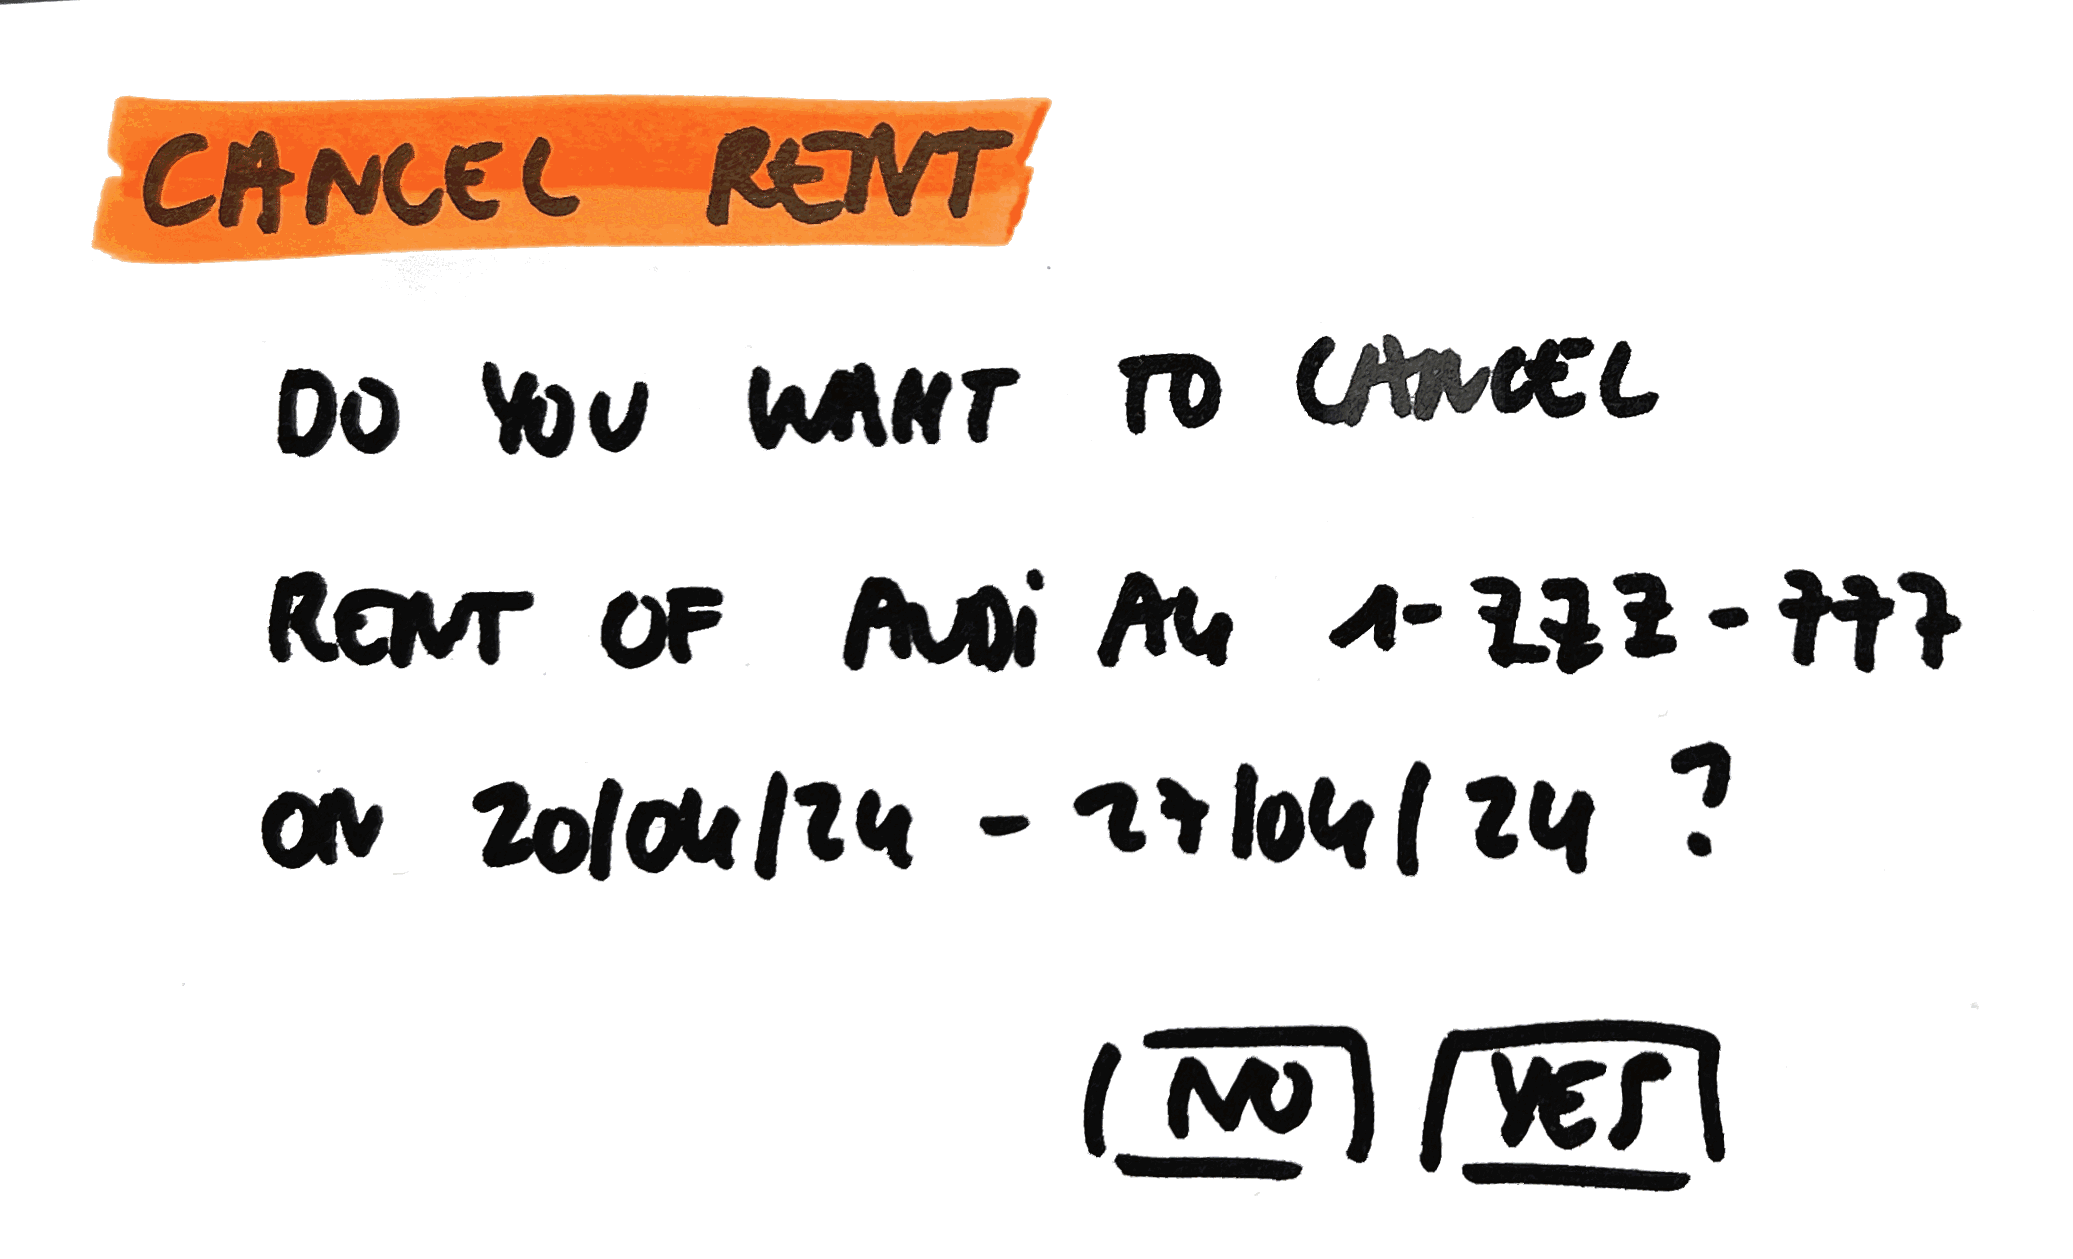 CANCEL RENT
DO YOU WANT TO CANCEL
RENT OF AUDi A4 1-ZZZ-777
ON 20/04/24 - 27/04/24 ?
NO YES